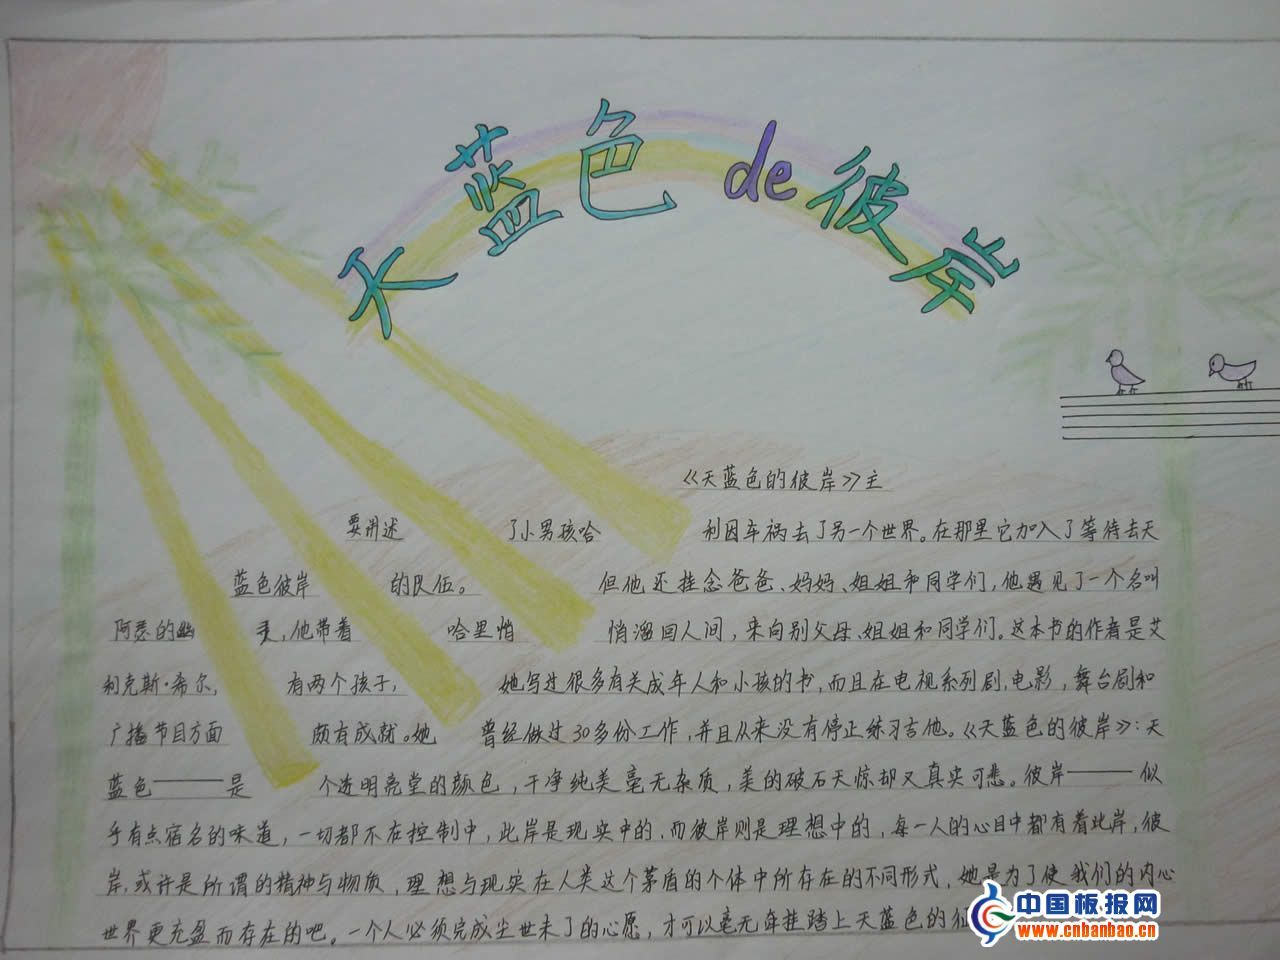 天蓝色de彼岸
《天蓝色的彼岸》主
要讲述了小男孩哈利因车祸去了另一个世界。在那里它加入了等待去天
蓝色彼岸的队伍。但他还挂念爸爸、妈妈、姐姐和同学们,他遇见了一个名叫
阿瑟的幽灵,他带着哈里悄悄溜回人间,来向别父母、姐姐和同学们。这本书的作者是艾
利克斯·希尔,有两个孩子,她写过很多有关成年人和小孩的书,而且在电视系列剧,电影,舞台剧和
广播节目方面颇有成就。她曾经做过30多份工作,并且从来没有停止练习吉他。《天蓝色的彼岸》:天
蓝色——是个透明亮堂的颜色,干净纯美毫无杂质,美的破石天惊却又真实可悲。彼岸——似
乎有点宿名的味道,一切都不在控制中,此岸是现实中的,而彼岸则是理想中的,每一人的心目中都有着此岸,彼
岸,或许是所谓的精神与物质,理想与现实在人类这个茅盾的个体中所存在的不同形式,她是为了使我们的内心
世界更充盈而存在的吧。一个人必须完成尘世未了的心愿,才可以毫无牵挂踏上天蓝色的征
中国板报网
www.cnbanbao.cn